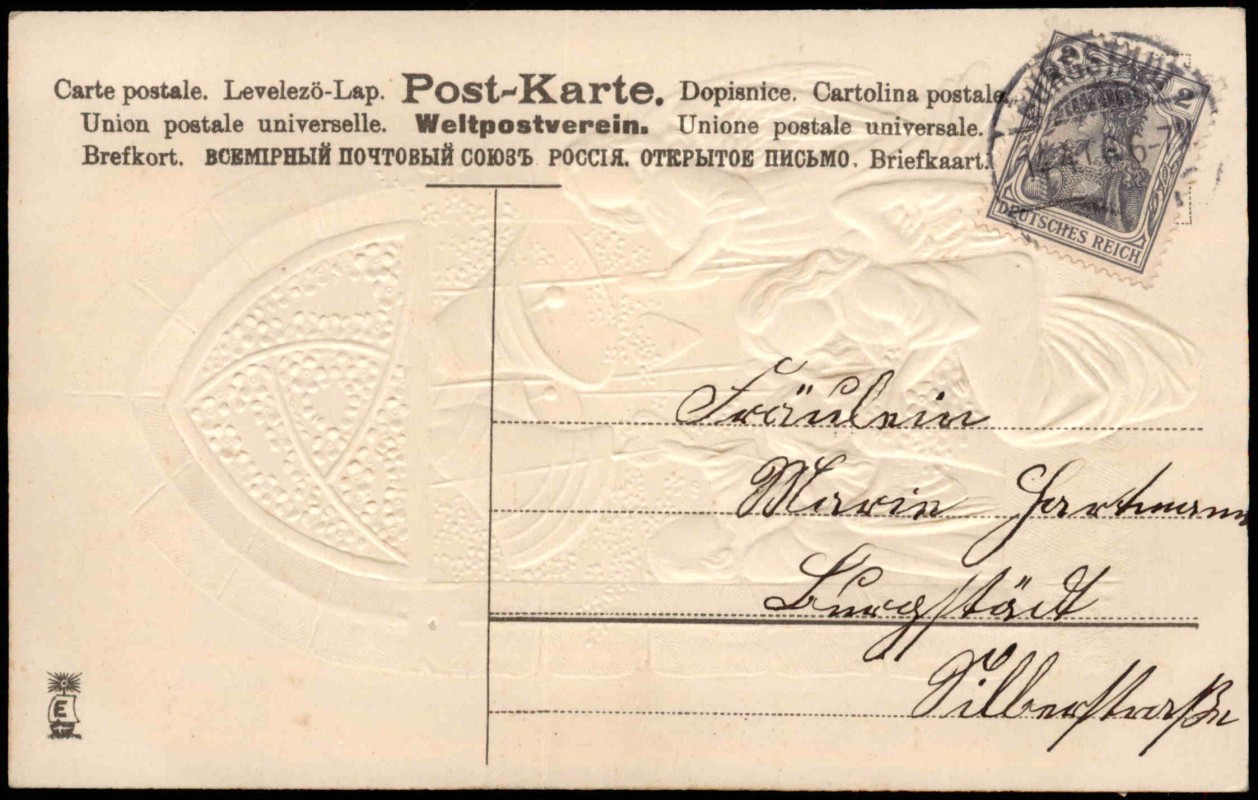 Carte postale. Levelezö-Lap. Post-Karte. Dopisnice. Cartolina postale.
Union postale universelle. Weltpostverein. Unione postale universale.
Brefkort. ВСЕМІРНЫЙ ПОЧТОВЫЙ СОЮЗЪ РОССІЯ. ОТКРЫТОЕ ПИСЬМО. Briefkaart.
BURGSTÄDT
2
DEUTSCHES REICH
Fräulein
Marie Hartmann
Burgstädt
Silberstraße
E